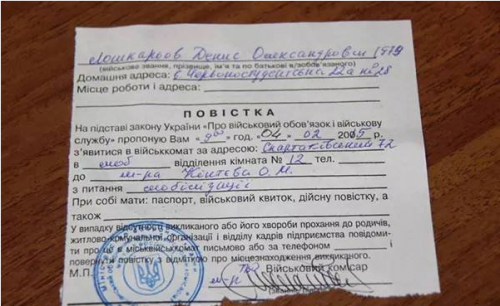 Лошкарьов Денис Олександрович 1979
(військове звання, прізвище, ім'я та по батькові військовозобов'язаного)
Домашня адреса: с. Червоностудентська 22а № 28
Місце роботи і адреса:
ПОВІСТКА
На підставі закону України «Про військовий обов'язок і військову
службу» пропоную Вам "04" 02 2015р.
з'явитися в військкомат за адресою: Спартаківський 72
в моб відділення кімната № 12 тел.
до м-ра О.М.
з питання мобілізації
При собі мати: паспорт, військовий квиток, дійсну повістку, а
також
У випадку відсутності викликаного або його хвороби прохання до родичів,
житлово комунальної організації і відділу кадрів підприємства повідоми-
ти про це в міськвійськкомат письмово або за телефоном і
повернути повістку з відміткою про місцезнаходження викликаного.
М.П. Військовий комісар
м-р